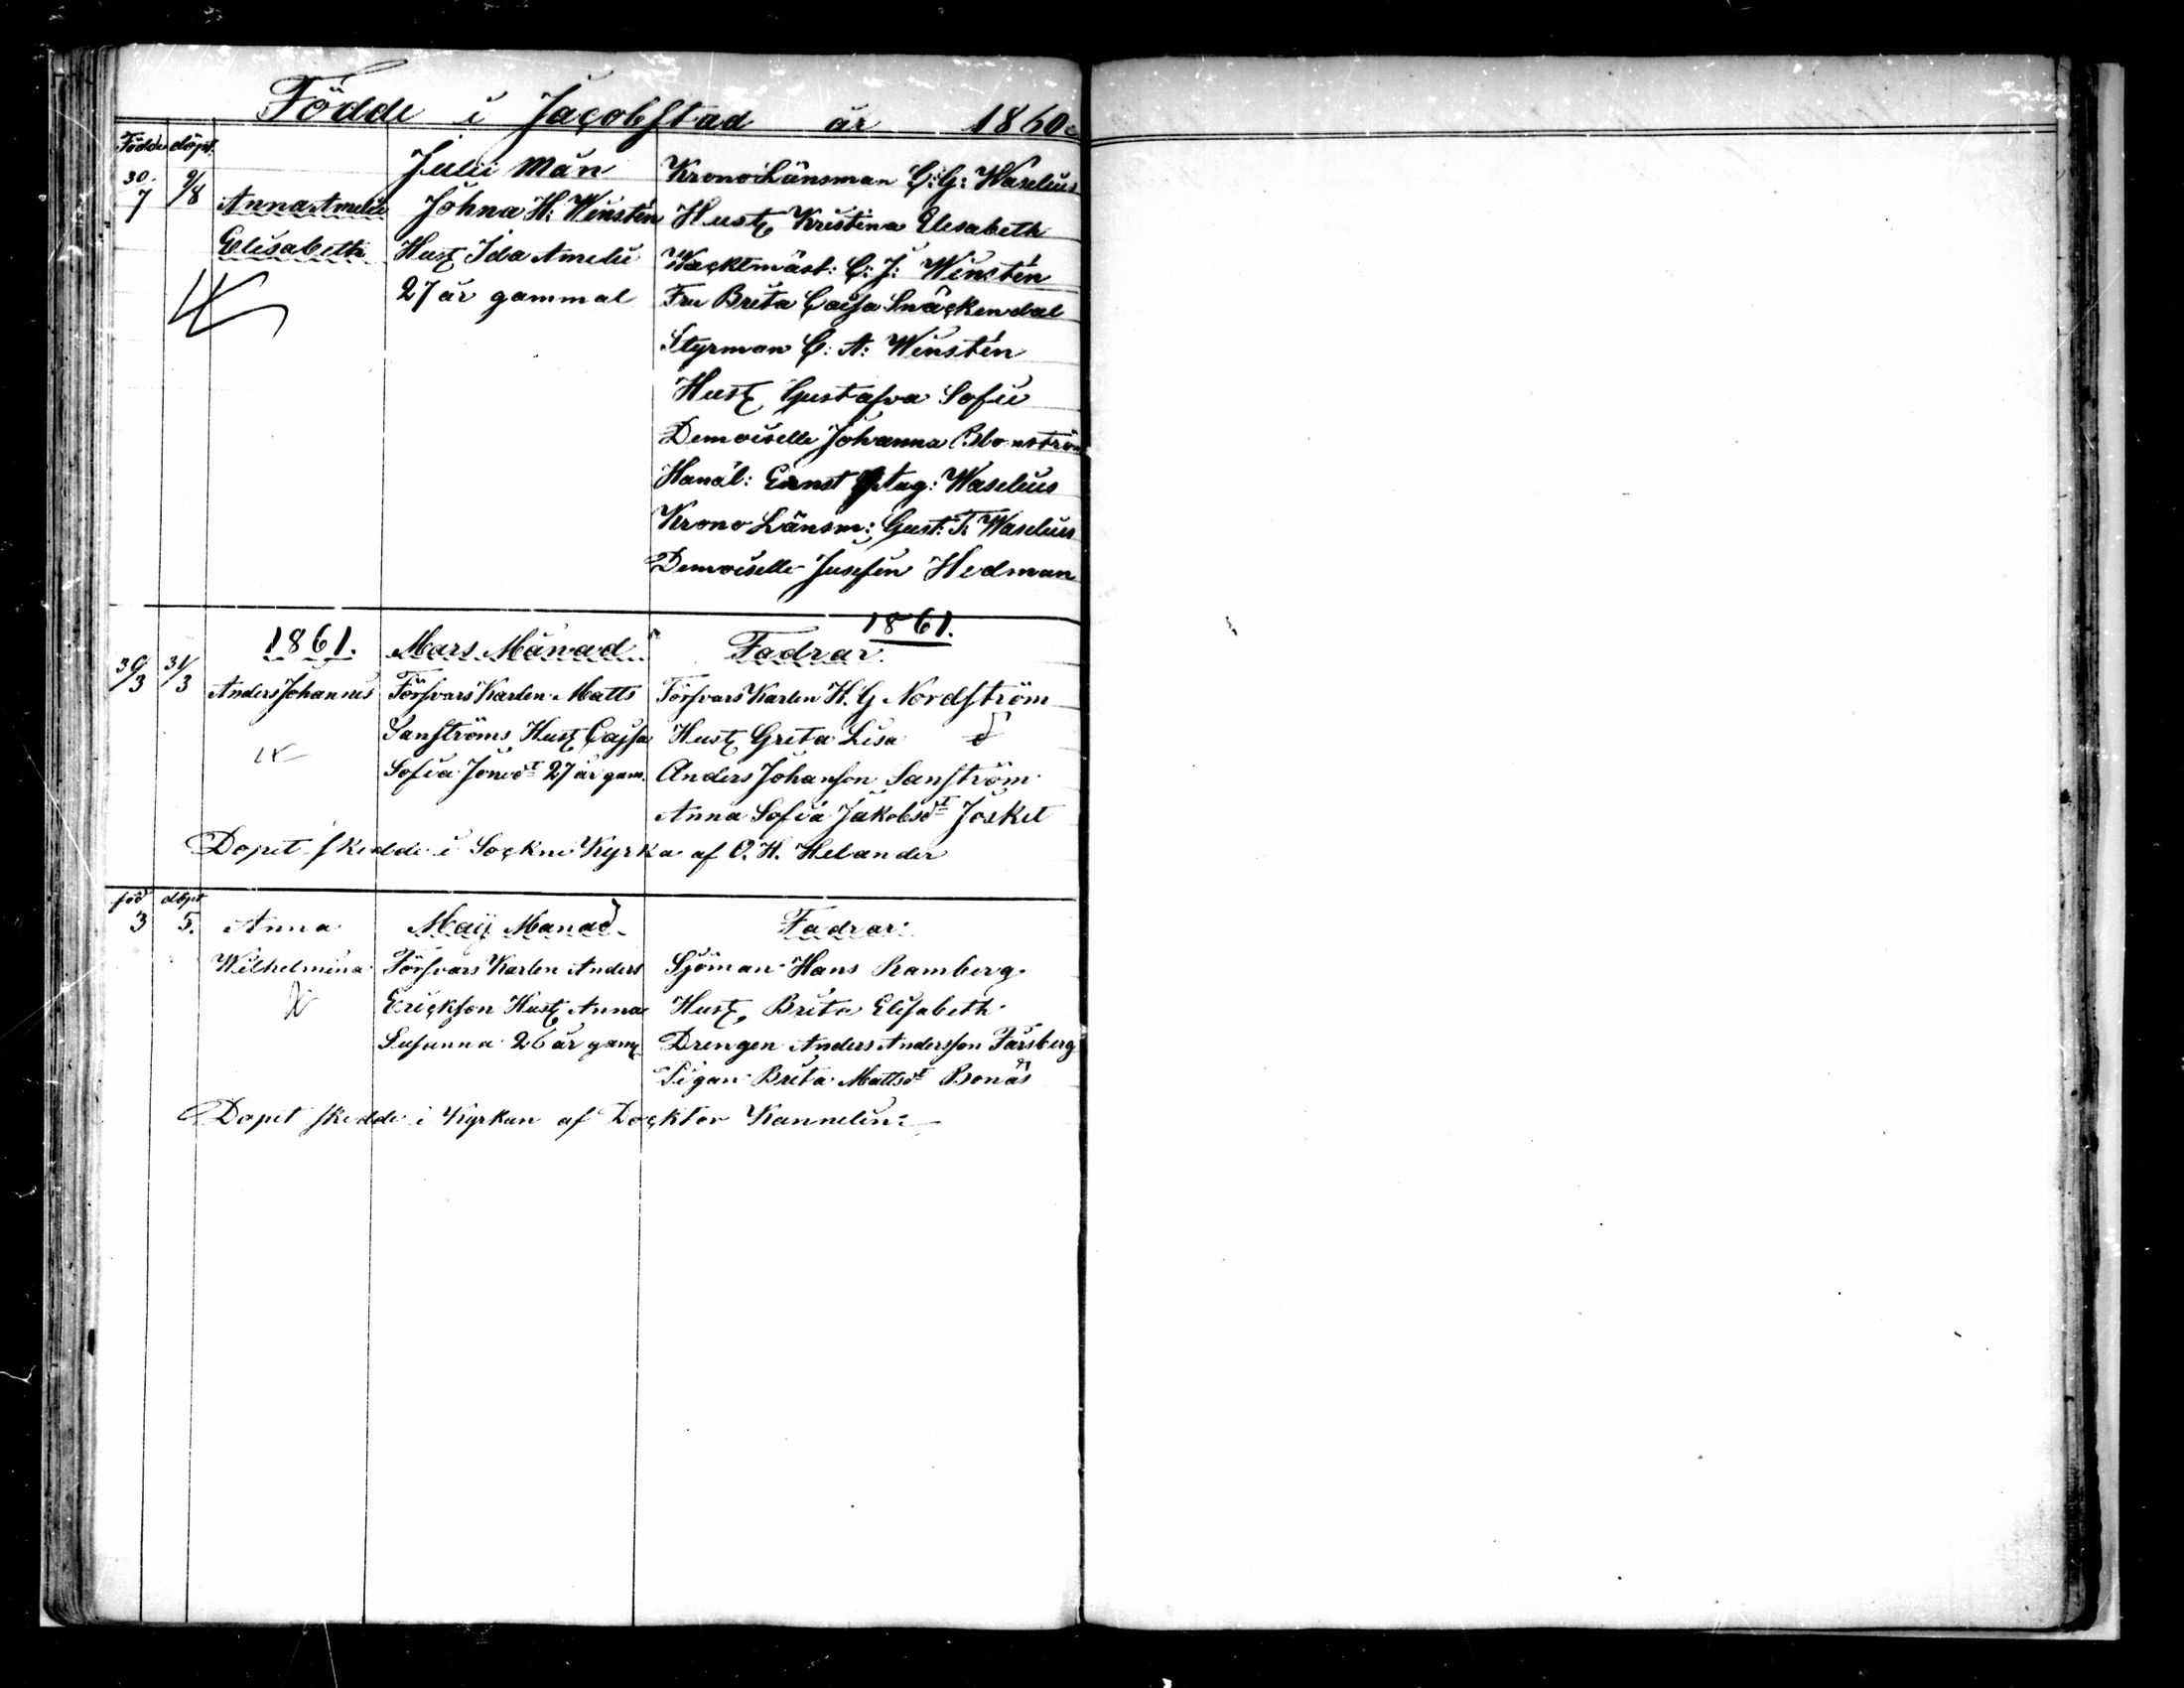 Födde i Jacobstad år 1860
Födde döpt.
Julii Mån Krono Länsman C: G: Waselius
30/7 9/8 Anna Amelie Johna H: Winstén Hust Kristina Elesabeth
Elisabeth Hust Ida Amelie Wacktmäst: C: J: Winstén
27 år gammal Fru Breta Caisa Snäckendal
Styrman C: A: Winstén
Hust Gustafva Sofie
Demoiselle Johanna Blomström
Handl: Ernst Aug: Waselius
Krono Länsm: Gust: T: Waselius
Demoiselle Jusefin Hedman
1861.
1861. Mars Månad Fadrar.
30/3 31/3 Anders Johannes Försvars Karlen Matts Försvars Karlen H. G Nordström
Sanströms Hust Cajsa Hust Greta Lisa
Sofia Jonsdt 27 år gam. Anders Johanson Sanström
Anna Sofia Jakobsdt Josket
Dopet skedde i Sockne Kyrka af O. H. Helander
föd döpt
3 5. Anna Maij Manad Fadrar:
Wilhelmina Försvars Karlen Anders Sjöman Hans Ramberg
Erickson Hust Anna Hust, Brita Elisabeth
Susanna 26 år gam Drengen Anders Andersson Färsberg
Pigan Brita Mattsdt Bonäs
Dopet skedde i Kyrkan af Docktor Kannelin